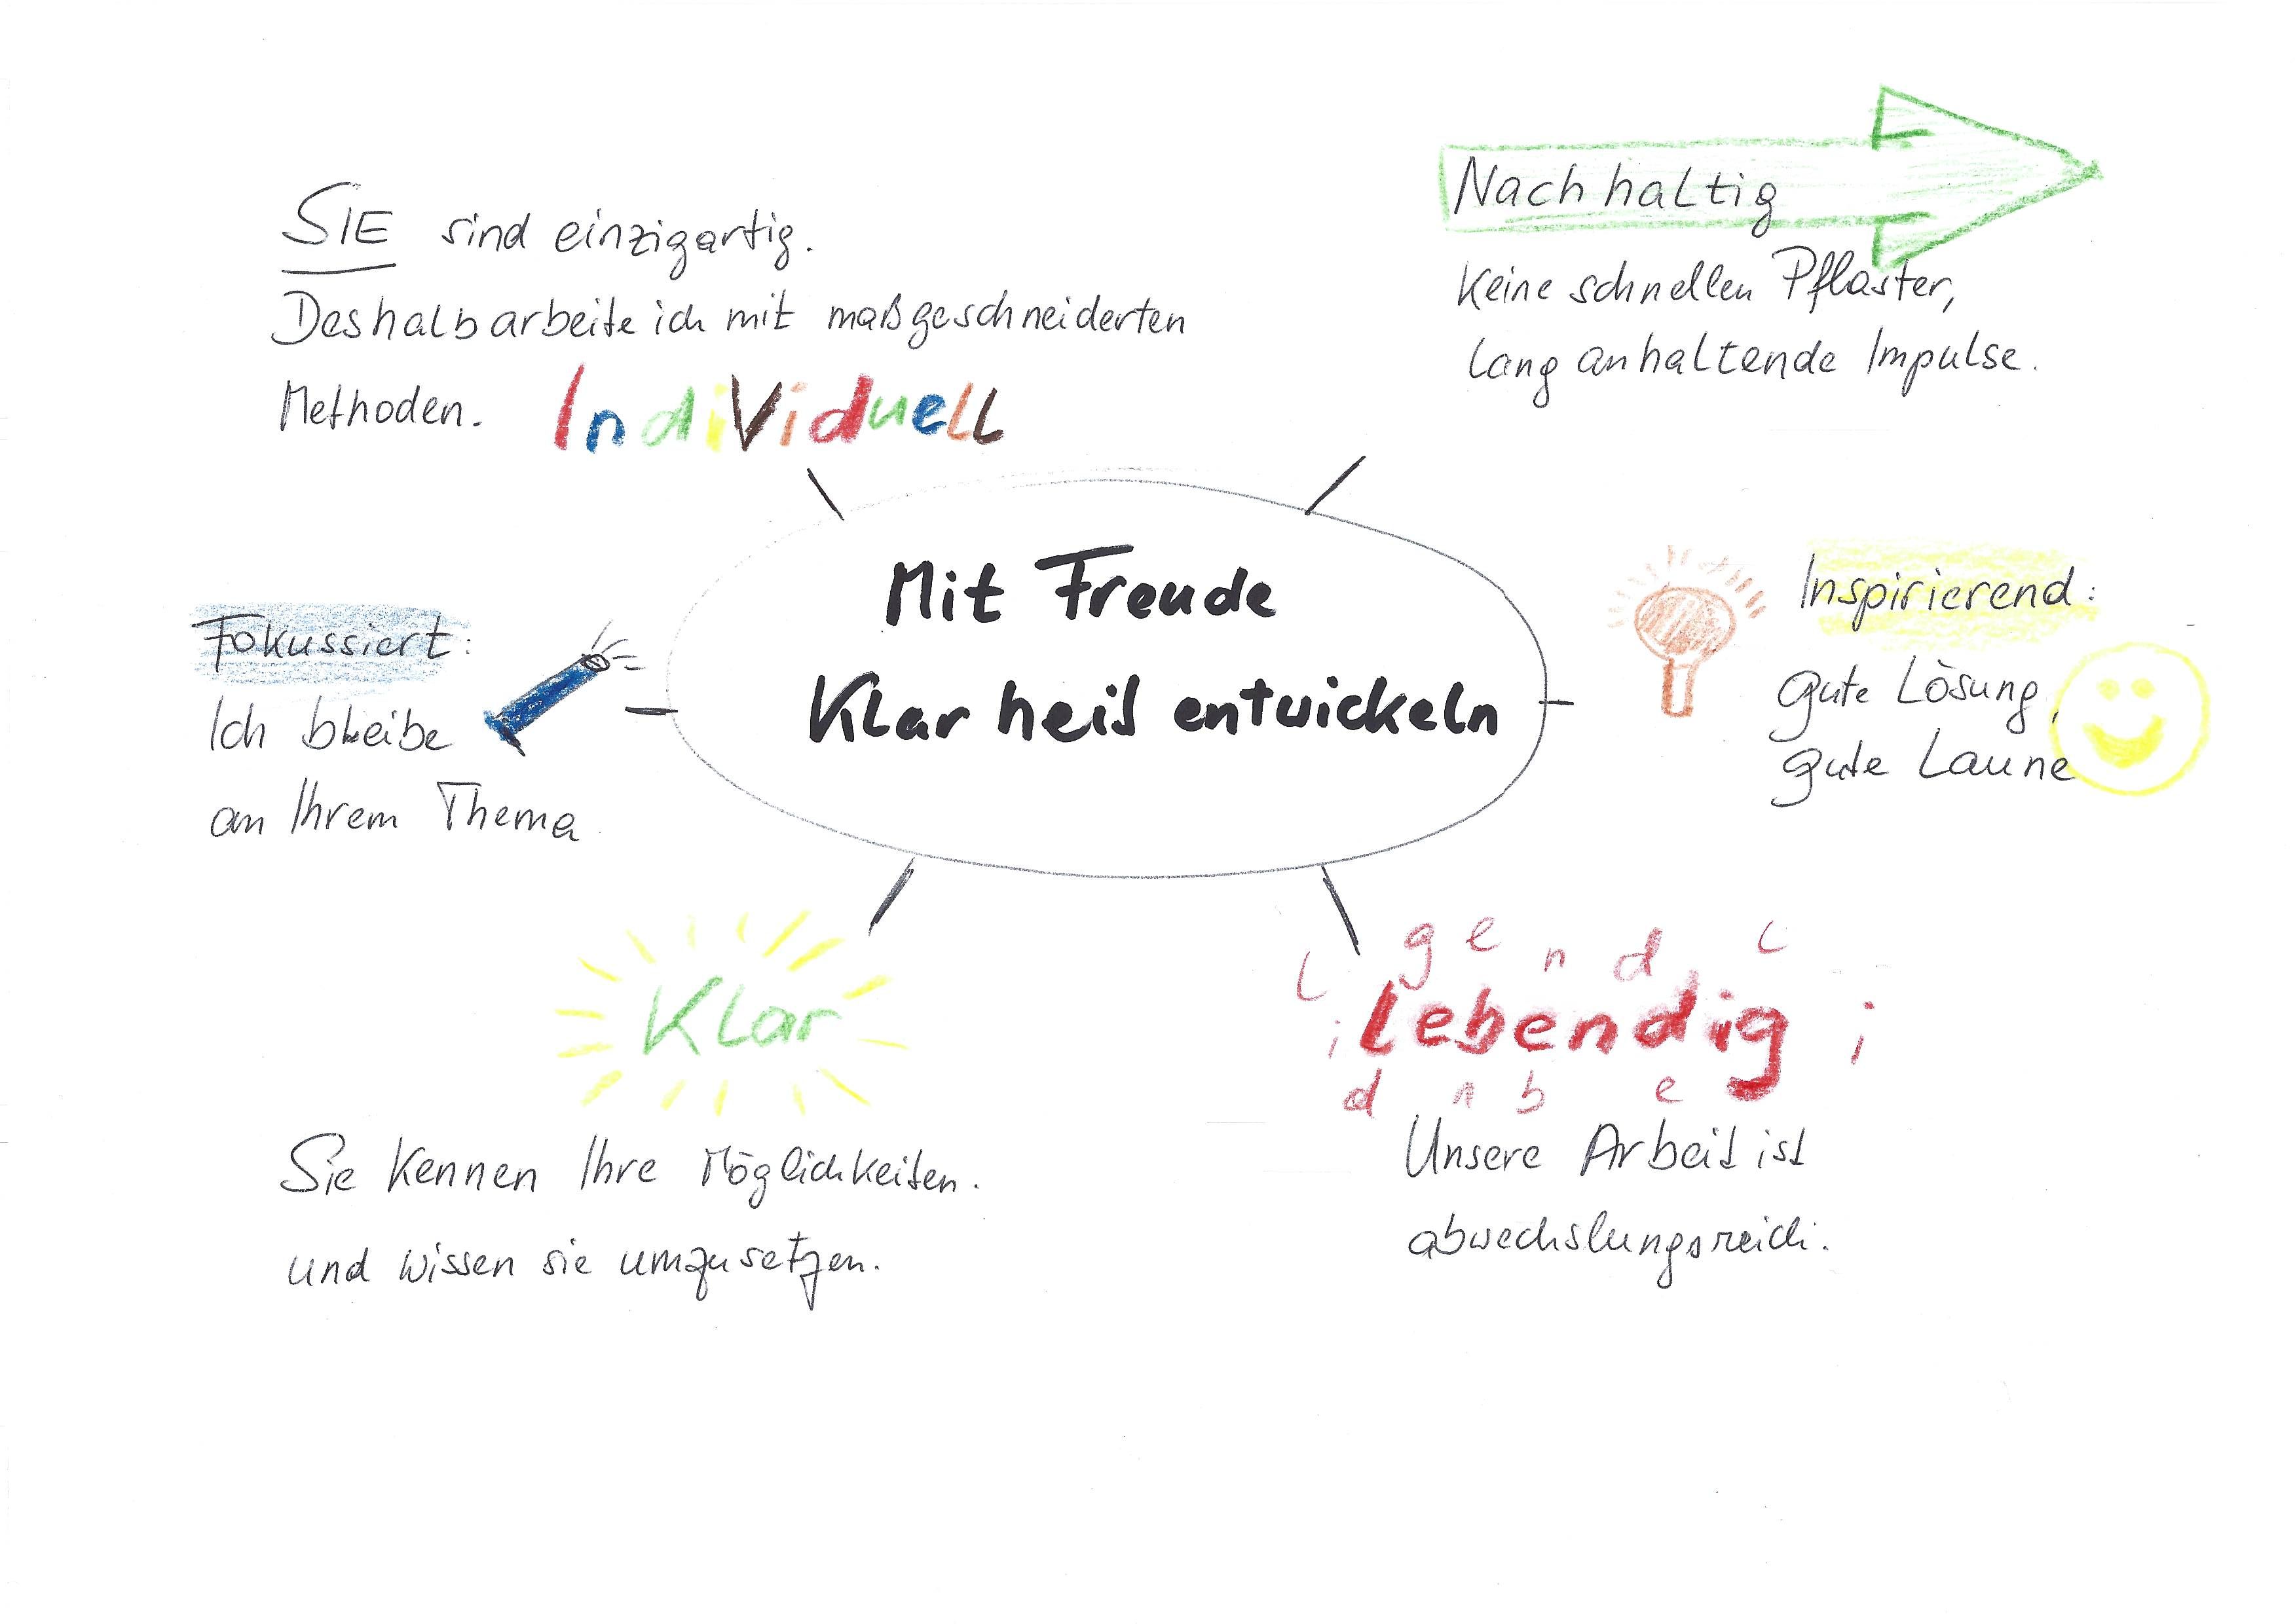 SIE sind einzigartig.
Deshalb arbeite ich mit maßgeschneiderten
Methoden. IndiViduell
Nachhaltig
Keine schnellen Pflaster,
lang anhaltende Impulse.
Mit Freude
Klarheit entwickeln
Fokussiert:
Ich bleibe
an Ihrem Thema
Inspirierend:
gute Lösung,
gute Laune
Klar
Sie kennen Ihre Möglichkeiten.
und wissen sie umzusetzen.
l g e n d l
i lebendig i
d n b e
Unsere Arbeit ist
abwechslungsreich.